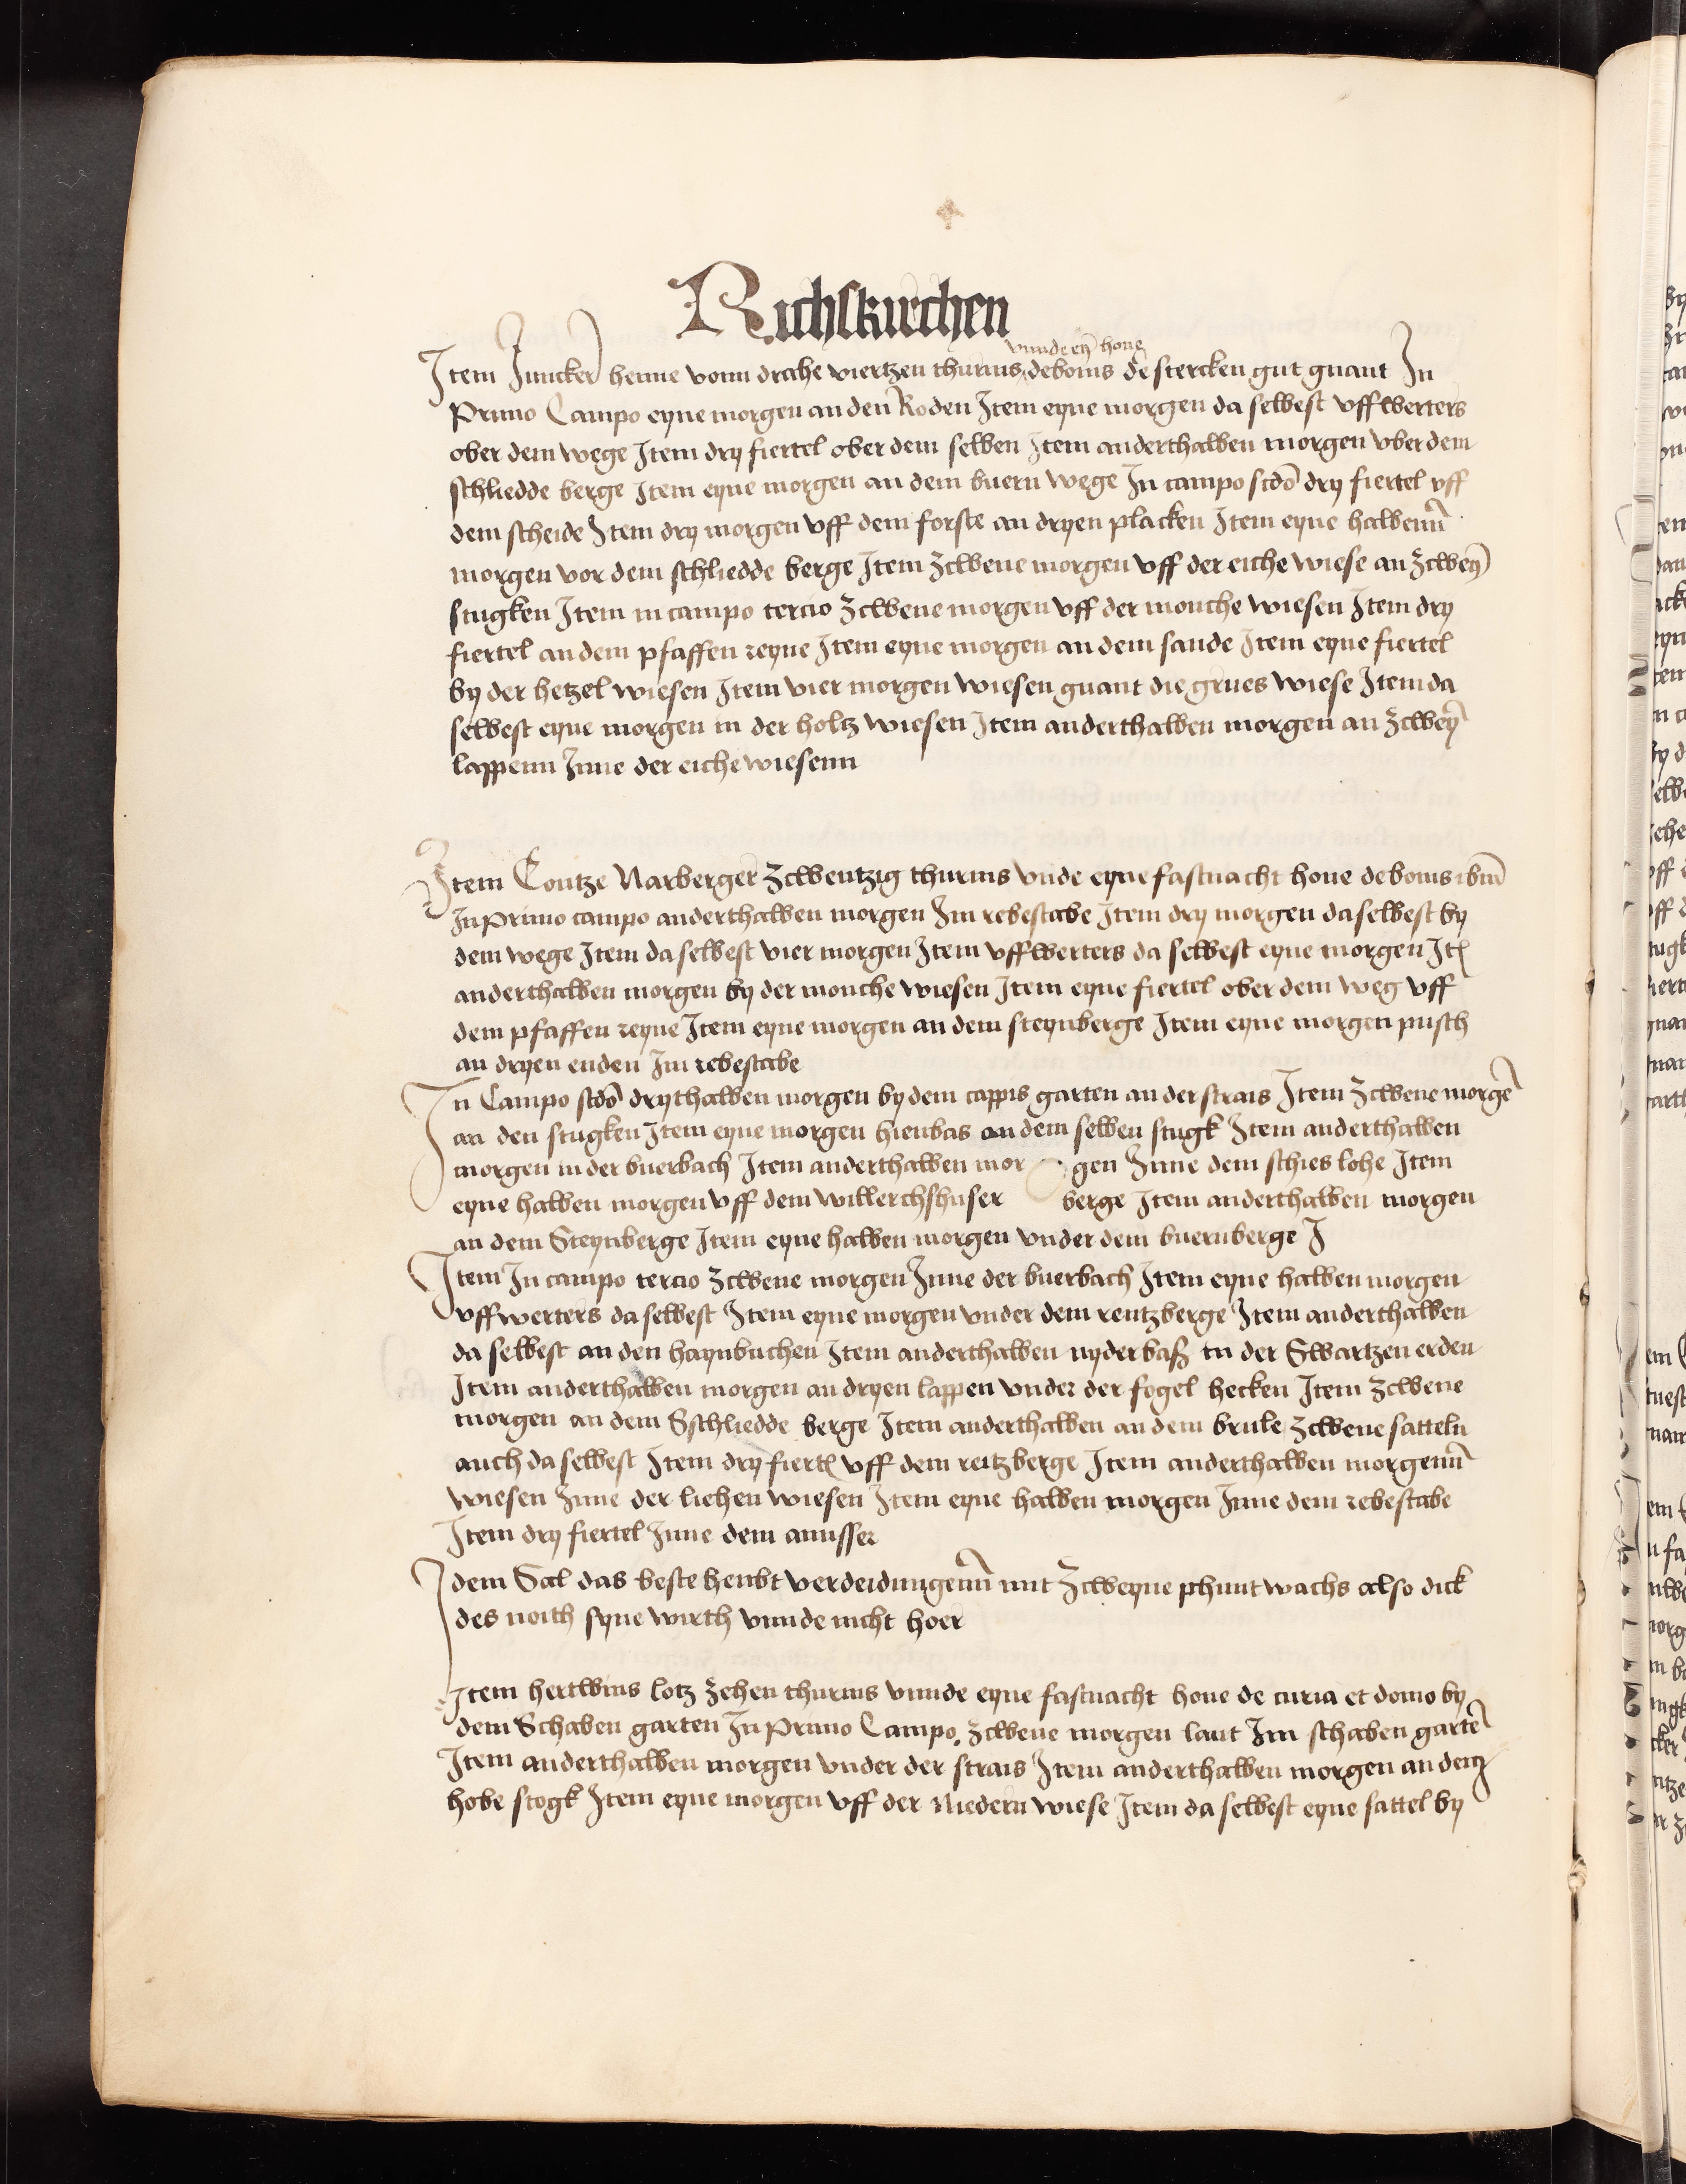 Richskirchen
vnnde eyn hone
Item Juncker henne vonn drahe viertzen thurnis de bonis de stercken gut gnant In
Primo Campo eyne morgen an den Roden Item eyne morgen da selbest vffwerters
ober dem wege Item dry fiertel ober dem selben Item anderthalben morgen vber dem
schliedde berge Item eyne morgen an dem buern wege In campo scdo dry fiertel vff
dem scheide Item dry morgen vff dem forste an dryen placken Item eyne halbenn
morgen vor dem schliedde berge Item zcwene morgen vff der eiche wiese an zcweyn
stugken Item in campo tercio zcwene morgen vff der monche wiesen Item dry
fiertel an dem pfaffen reyne Item eyne morgen an dem sande Item eyne fiertel
by der hetzel wiesen Item vier morgen wiesen gnant die grues wiese Item da
selbest eyne morgen in der holtz wiesen Item anderthalben morgen an zcweyn
lappenn Inne der eiche wiesenn
Item Contze Narberger zcwentzig thurnis vnde eyne fastnacht hone de bonis ibm
In primo campo anderthalben morgen Im rebestabe Item dry morgen daselbest by
dem wege Item da selbest vier morgen Item vffwerters da selbest eyne morgen Itn
anderthalben morgen by der monche wiesen Item eyne fiertel ober dem weg vff
dem pfaffen reyne Item eyne morgen an dem steynberge Item eyne morgen pusch
an dryen enden Im rebestabe
In Campo scdo drythalben morgen by dem cappis garten an der strais Item zcwene morge
an den stugken Item eyne morgen hienbas an dem selben stugk Item anderthalben
morgen in der buerbach Item anderthalben mor gen Inne dem schies lohe Item
eyne halben morgen vff dem willerchshuser berge Item anderthalben morgen
an dem Steynberge Item eyne halben morgen vnder dem buernberge I
Item In campo tercio zcwene morgen Inne der buerbach Item eyne halben morgen
vffwerters da selbest Item eyne morgen vnder dem rentzberge Item anderthalben
da selbest an den haynbuchen Item anderthalben nyderbaß in der Swartzen erden
Item anderthalben morgen an dryen lappen vnder der fogel hecken Item zcwene
morgen an dem Sschliedde berge Item anderthalben an dem brule zcwene satteln
auch da selbest Item dry fiertl vff dem reitzberge Item anderthalben morgenn
wiesen Inne der liehen wiesen Item eyne halben morgen Inne dem rebestabe
Item dry fiertel Inne dem
Idem Sal das beste heubt verdeidungenn mit zcweyne phunt wachs also dick
des noith syne wirth vnnde nicht hoer
Item hertwins lotz zehen thurnis vnnde eyne fastnacht hone de curia et domo by
dem Schaben garten In Primo Campo zcwene morgen lant Im schaben garte
Item anderthalben morgen vnder der strais Item anderthalben morgen an dem
hobe stogk Item eyne morgen vff der Niedern wiese Item da selbest eyne sattel by